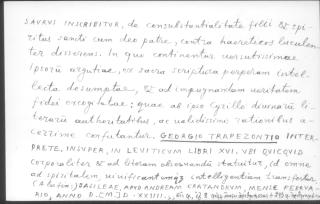 SAVRVS INSCRIBITUR, de consubstantialitate filii & spi-
ritus sancti cum deo patre, contra haereticos luculen-
ter disserens. In quo continentur uersutissimae
ipsorū argutiae, ex sacra scriptura perperam intel-
lecta desumptae, & ad impugnandam ueritatem
fidei excogitatae: quae ab ipso Cyrillo diuinarū li-
terarū authoritatibus, ac ualidissimis rationibus a-
cerrime confutantur. GEORGIO TRAPEZONTIO INTER-
PRETE, INSUPER, IN LEVITICUM LIBRI XVI. VBI QUICQVID
corporaliter & ad literam obseruandū statuitur, id omne
ad spiritalem, uiuificantemq́ȝ intelligentiam transfertur
(A la fin:) BASILEAE, APVD ANDREAM CRATANDRVM, MENSE FEBRVA-
RIO, ANNO D.M.D.XXIIII.